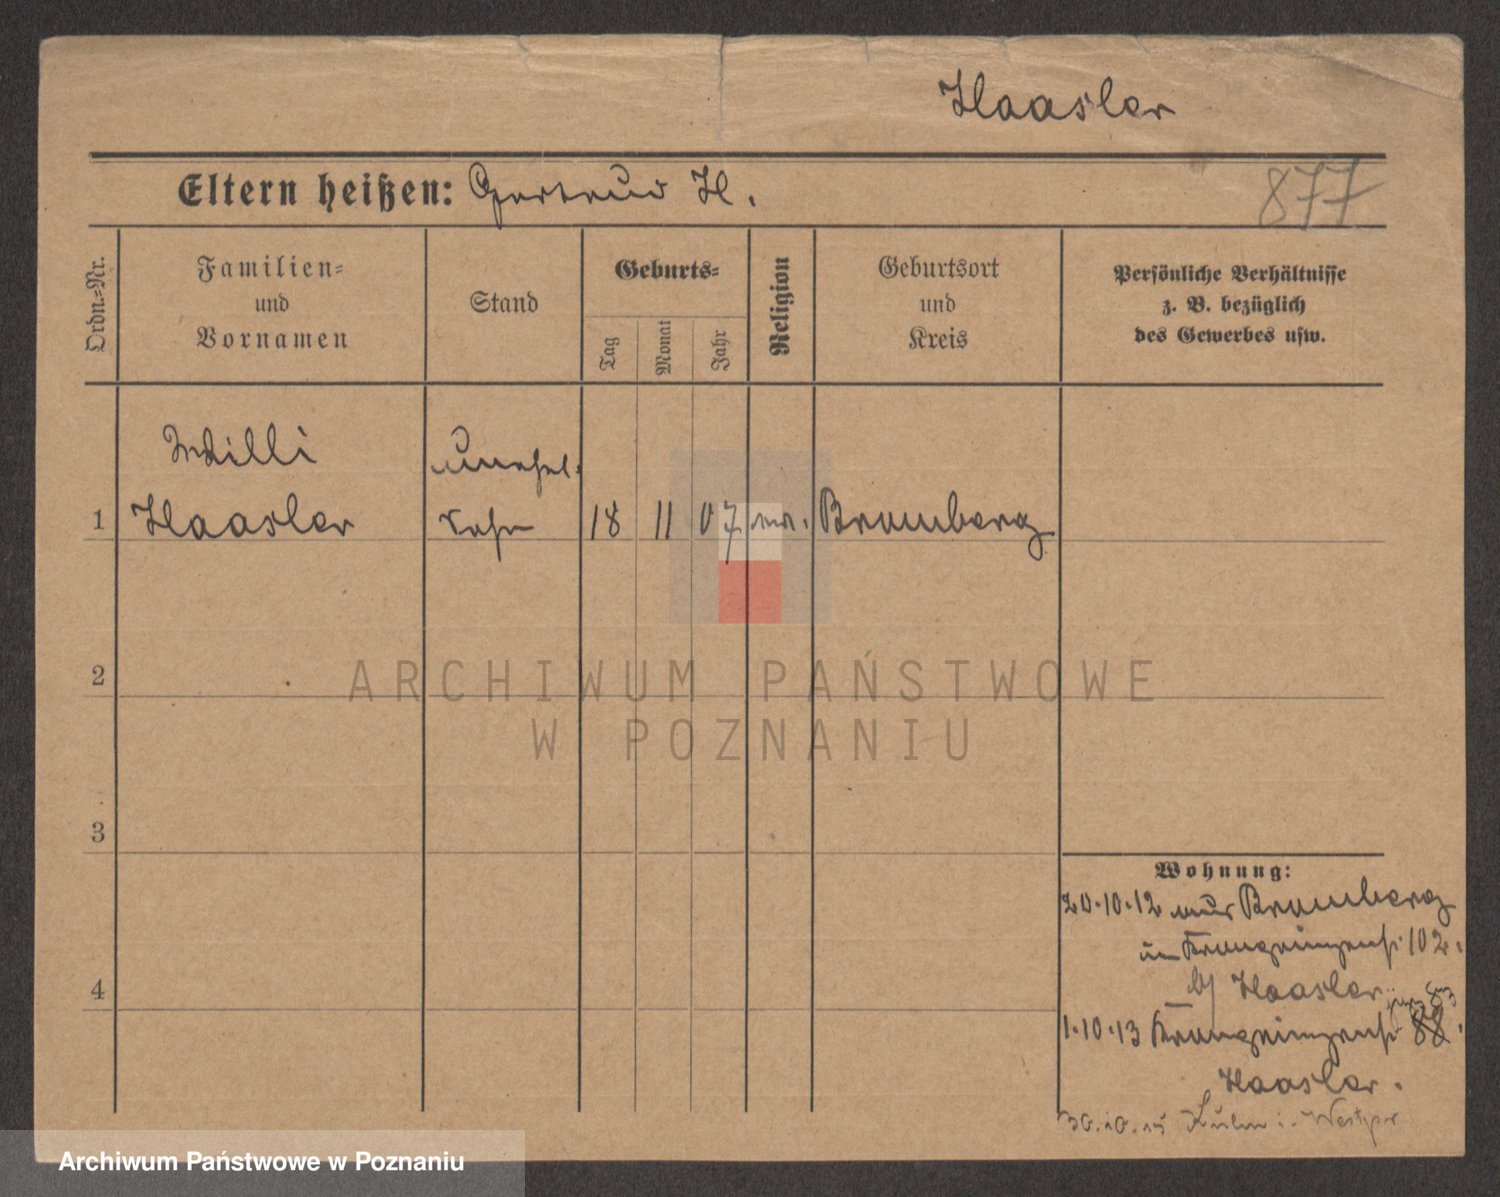 Haasler
Eltern heißen: Gertrud H.
877
Ordn.-Nr.
Familien-
und
Vornamen
Stand
Geburts-
Tag
Monat
Jahr
Religion
Geburtsort
und
Kreis
Persönliche Verhältnisse
z. B. bezüglich
des Gewerbes usw.
Willi
unehel.
1 Haasler Sohn 18 11 07 ev. Bromberg
2
3
4
Wohnung:
20.10.12 aus Bromberg
102.
b/ Haasler
83
1.10.13 88.
Haasler.
30.10.15 Kulm i. Westpr
ARCHIWUM PAŃSTWOWE
W POZNANIU
Archiwum Państwowe w Poznaniu